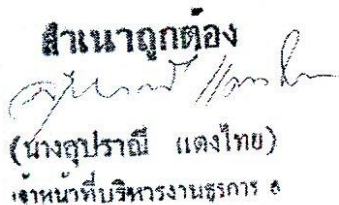 สำเนาถูกต้อง
(นางสุปราณี แดงไทย)
เจ้าหน้าที่บริหารงานธุรการ 6